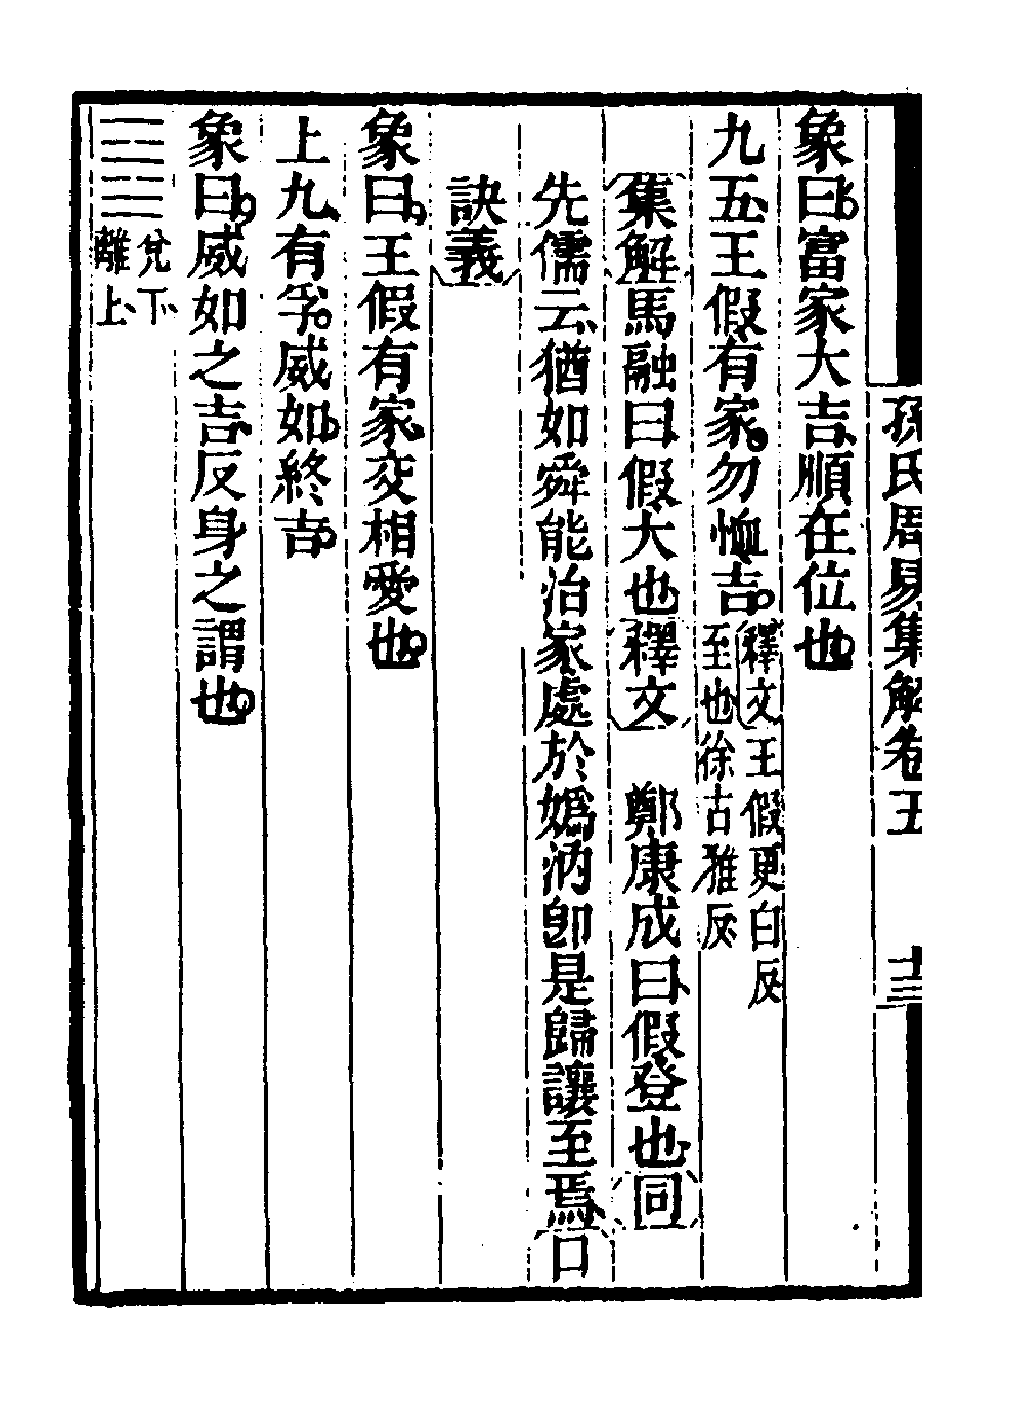 孫氏周易集解卷五
十三
象曰富家大吉順在位也
九五王假有家勿恤吉釋文王假更白反至也徐古雅反
集解馬融曰假大也釋文 鄭康成曰假登也同
先儒云猶如舜能治家處於嬀汭卽是歸讓至焉口
訣義
象曰王假有家交相愛也
上九有孚威如終吉
象曰威如之吉反身之謂也
兌下離上